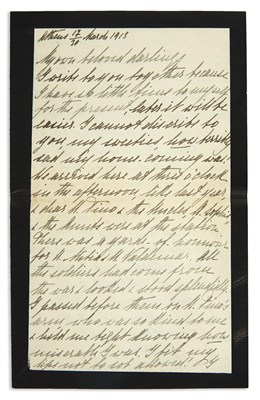 Athens 17/30 March 1913
My own beloved darlings
I write to you together because
I have so little time to myself
for the present, later it will be
easier. I cannot describe to
you my sweeties, how terribly
sad my home-coming was!
We arrived here at three o'clock
in the afternoon, like last year
& dear U. Tino & the Uncles,
& the Aunts were at the station.
There was a guard-of honour
for U. & U. Valdemar. All
the soldiers had come from
the war & looked & stood splendidly
I passed before them on U. Tino's
arm, who was so kind to me
& held me tight knowing how
miserable I was. I bit my
lips not to